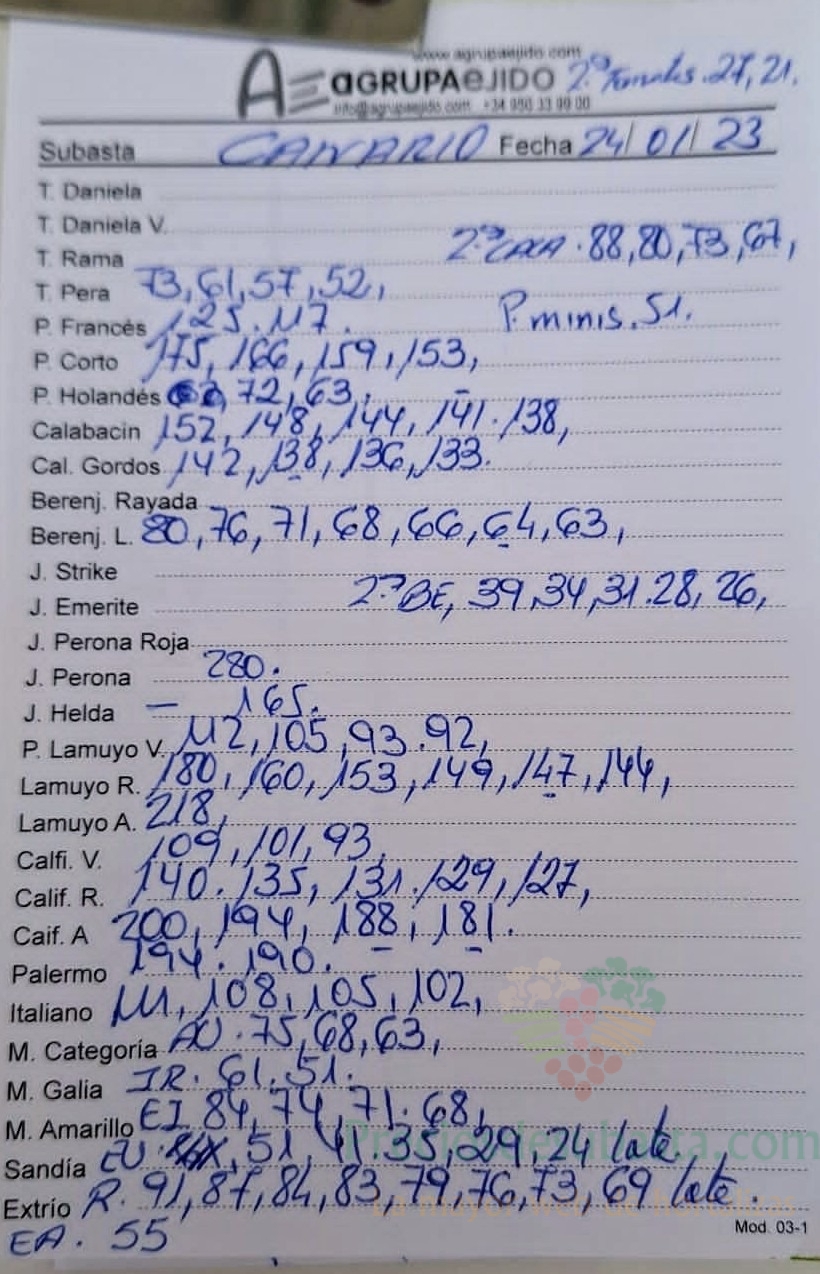 www.agrupaejido.com
AGRUPAEJIDO 2ª Tomates. 27, 21.
info@agrupaejido.com +34 950 33 99 00
Subasta CANARIO Fecha 24/01/23
T. Daniela
T. Daniela V.
T. Rama 2ª CAÑA. 88, 80, 73, 67,
T. Pera 73, 61, 57, 52,
P. Francés 125. 117. P. minis. 51.
P. Corto 175, 166, 159, 153,
P. Holandés 72, 63,
Calabacin 152, 148, 144, 141. 138,
Cal. Gordos 142, 138, 136, 133.
Berenj. Rayada
Berenj. L. 80, 76, 71, 68, 66, 64, 63,
J. Strike
J. Emerite 2ª BE, 39, 34, 31. 28, 26,
J. Perona Roja
J. Perona 280.
J. Helda — 165.
P. Lamuyo V. 112, 105, 93. 92,
Lamuyo R. 180, 160, 153, 149, 147, 144,
Lamuyo A. 218,
Calfi. V. 109, 101, 93,
Calif. R. 140. 135, 131. 129, 127,
Caif. A 200, 194, 188, 181.
Palermo 194. 190.
Italiano 111, 108, 105, 102,
M. Categoría AU. 75, 68, 63,
M. Galia IR. 61. 51.
M. Amarillo EI 84, 74, 71. 68,
Sandía EU. 51, 41. 35, 29, 24 lote.
Preciosdesubasta.com
Extrío R. 91, 87, 84, 83, 79, 76, 73, 69 lote.
Mod. 03-1
EA. 55